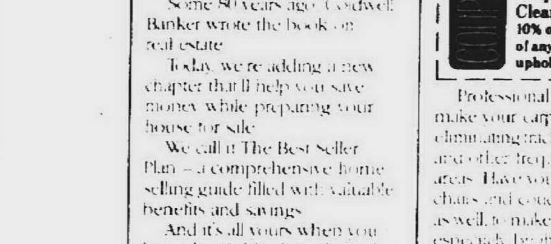 Some 80 years ago, Coldwell
Banker wrote the book on
real estate
Today, we're adding a new
chapter that'll help you save
money while preparing your
house for sale
We call it The Best Seller
Plan – a comprehensive home
selling guide filled with valuable
benefits and savings
And it's all yours when you
Clean
10% o
of any
uphol
Professional
make your carp
eliminating trac
and other freq
areas. Have you
chairs and couc
as well, to make
especially brigh